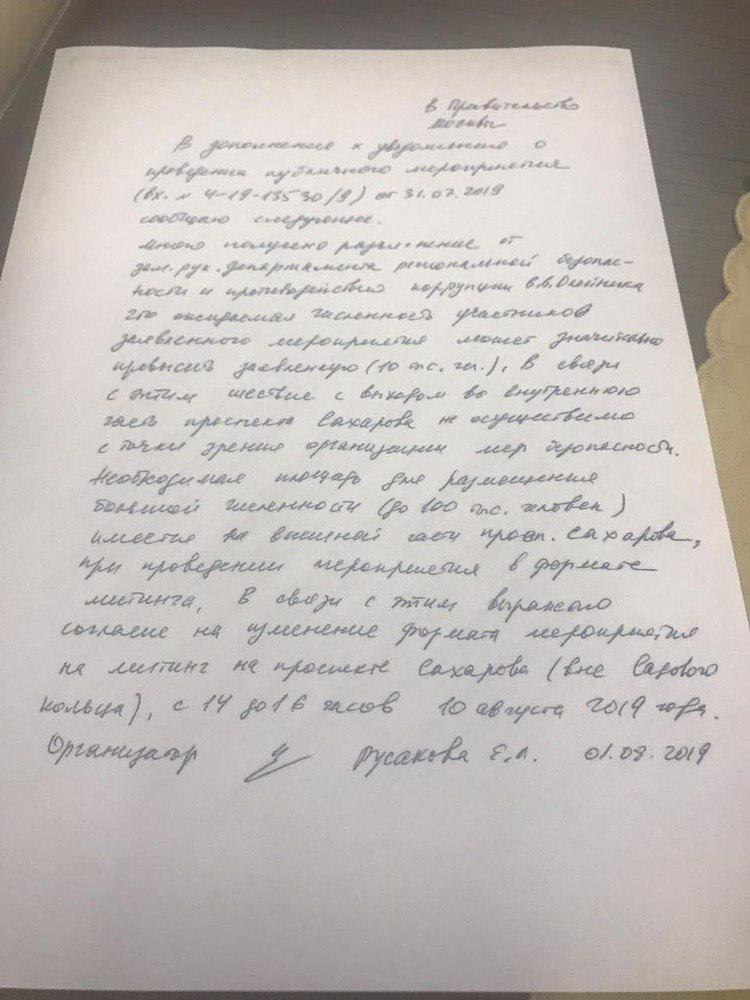 в Правительство
Москвы
В дополнение к уведомлению о
проведении публичного мероприятия
(вх. № 4-19-13530/9) от 31.07.2019
сообщаю следующее.
Мною получено разъяснение от
зам. рук. департамента региональной безопас-
ности и противодействия коррупции В.В. Олейника
что ожидаемая численность участников
заявленного мероприятия может значительно
превысить заявленную (10 тыс. чел.), В связи
с этим шествие с выходом во внутреннюю
часть проспекта Сахарова не осуществимо
с точки зрения организации мер безопасности.
Необходимая площадь для размещения
большой численности (до 100 тыс. человек)
имеется на внешней части просп. Сахарова,
при проведении мероприятия в формате
митинга, В связи с этим выражаю
согласие на изменение формата мероприятия
на митинг на проспекте Сахарова (вне Садового
кольца), с 14 до 16 часов 10 августа 2019 года.
Организатор Русакова Е.Л. 01.08.2019